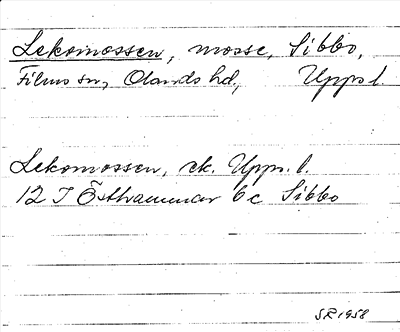 Lekomossen, mosse, Sibbo,
Films sn, Olands hd, Upps l.
Lekomossen, ek. Upps. l.
12 I Östhammar 6 c Sibbo
SR 1958